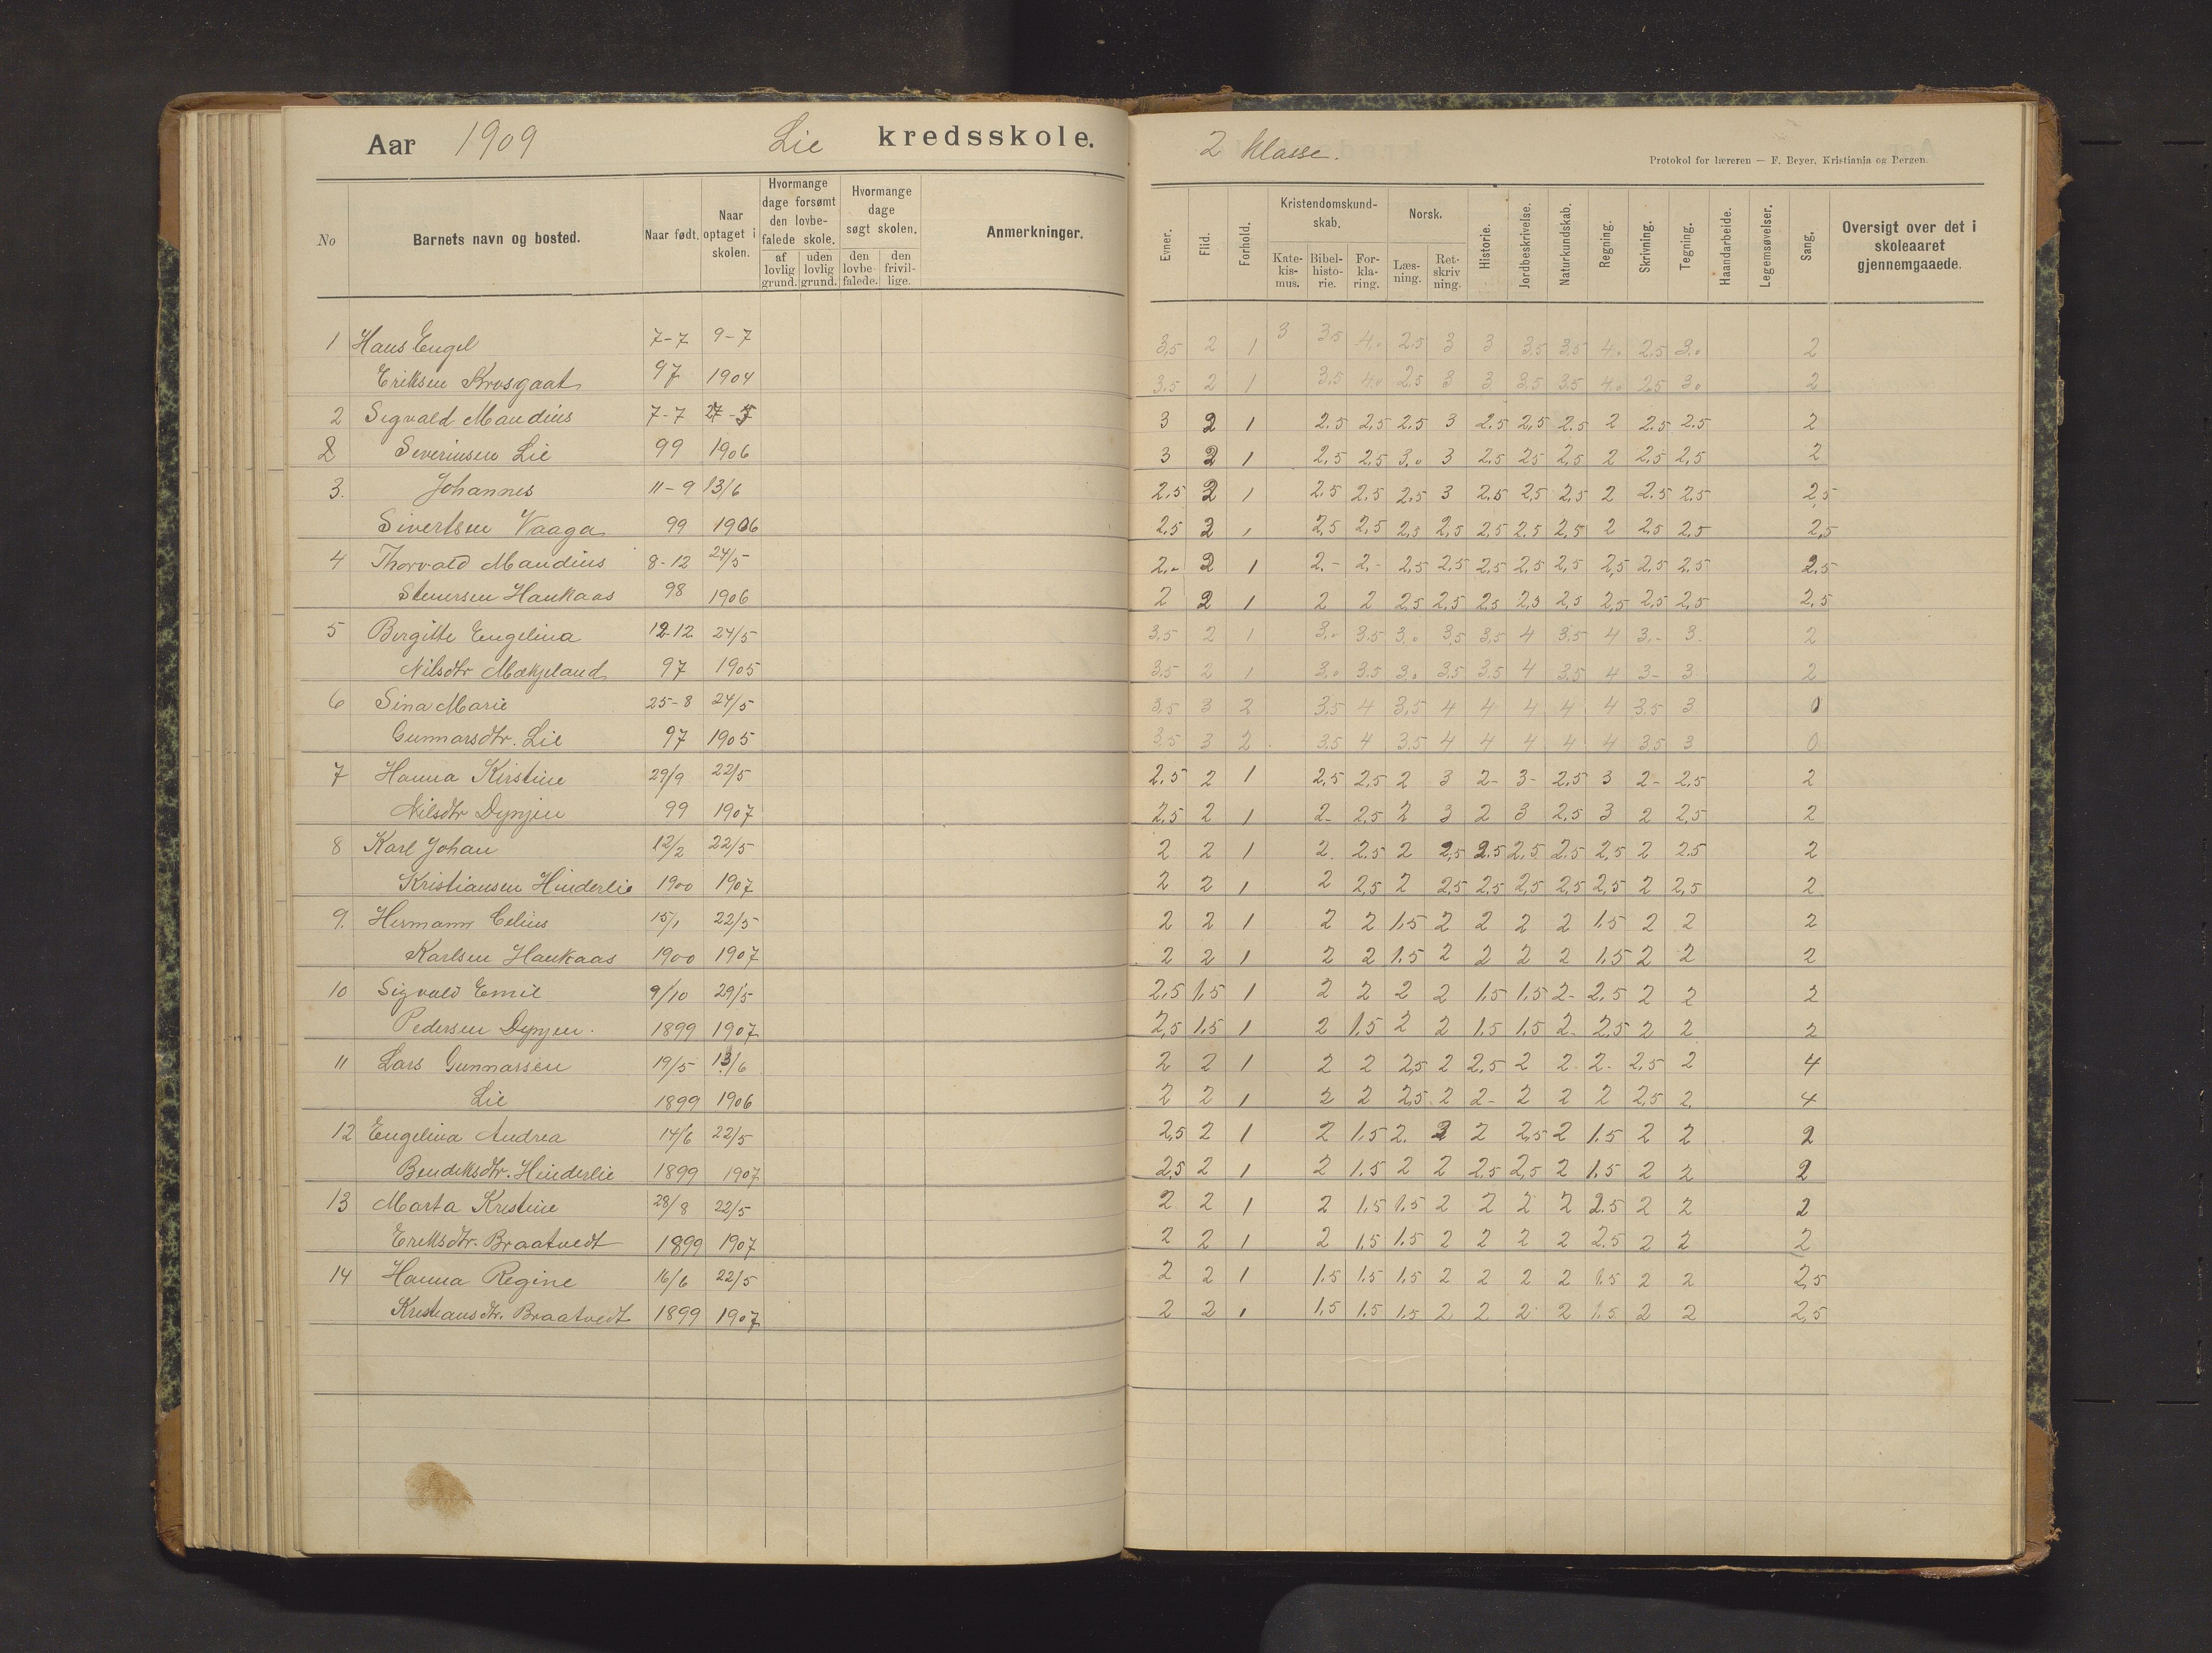 Aar 1909 Lie kredsskole.
2 klasse.
Protokol for læreren — F. Beyer, Kristiania og Bergen.
No
Barnets navn og bosted.
Naar født.
Naar optaget i skolen.
Hvormange dage forsømt den lovbe-falede skole.
af lovlig grund.
uden lovlig grund.
Hvormange dage søgt skolen.
den lovbe-falede.
den frivil-lige.
Anmerkninger.
Evner.
Flid.
Forhold.
Kristendomskund-skab.
Kate-kis-mus.
Bibel-histo-rie.
For-kla-ring.
Norsk.
Læs-ning.
Ret-skriv ning.
Historie.
Jordbeskrivelse.
Naturkundskab.
Regning.
Skrivning.
Tegning.
Haandarbeide.
Legemsøvelser.
Sang.
Oversigt over det i skoleaaret gjennemgaaede.
1 Hans Engel 7-7 9-7 3,5 2 1 3 3.5 4.0 2.5 3 3 3.5 3.5 4.0 2.5 3.0 2
Eriksen Krosgaat 97 1904 3.5 2 1 3.5 4.0 2.5 3 3 3.5 3.5 4.0 2.5 3.0 2
2 Sigvald Mandius 7-7 3 2 1 2.5 2.5 2.5 3 2.5 2,5 2.5 2 2.5 2.5 2
2 Severinsen Lie 99 1906 3 2 1 2,5 2.5 3.0 3 2,5 2.5 2,5 2 2,5 2,5 2
3. Johannes 11-9 13/6 2,5 2 1 2,5 2,5 2,5 3 2,5 2,5 2,5 2 2.5 2,5 2,5
Sivertsen Vaaga 99 1906 2,5 2 1 2,5 2,5 2,5 2,5 2,5 2.5 2,5 2 2,5 2,5 2,5
4 Thorvald Mandius 8-12 24/5 2.- 2 1 2.- 2.- 2,5 2.5 2,5 2,5 2,5 2,5 2.5 2.5 2.5
Stenersen Haukaas 98 1906 2 2 1 2 2 2,5 2,5 2,5 2,5 2,5 2,5 2,5 2,5 2,5
5 Birgitte Engelina 12-12 24/5 3,5 2 1 3.0 3.5 3.0 3,5 3,5 4 3.5 4 3.- 3. 2
Nilsdtr Mækjeland 97 1905 3.5 2 1 3.0 3.5 3.0 3.5 3.5 4 3.5 4 3- 3 2
6 Sina Marie 25-8 24/5 3,5 3 2 3.5 4 3,5 4 4 4 4 4 3.5 3 0
Gunnarsdtr. Lie 97 1905 3,5 3 2 3.5 4 3.5 4 4 4 4 4 3.5 3 0
7 Hanna Kirstine 29/9 22/5 2.5 2 1 2,5 2,5 2 3 2- 3- 2,5 3 2- 2,5 2
Nilsdtr Dypjen 99 1907 2,5 2 1 2- 2,5 2 3 2 3 2,5 3 2 2,5 2
8 Karl Johan 12/2 22/5 2 2 1 2. 2.5 2 2,5 2.5 2,5 2.5 2,5 2 2.5 2
Kristiansen Hinderlie 1900 1907 2 2 1 2 2,5 2 2,5 2,5 2,5 2,5 2,5 2 2,5 2
9. Hermann Celius 15/1 22/5 2 2 1 2 2 1,5 2 2 2 2 1.5 2 2 2
Karlsen Haukaas 1900 1907 2 2 1 2 2 1.5 2 2 2 2 1.5 2 2 2
10 Sigvald Emil 9/10 29/5 2,5 1,5 1 2 2 2 2 1.5 1.5 2- 2.5 2 2 2
Pedersen Dypjen. 1899 1907 2,5 1.5 1 2 1.5 2 2 1.5 1.5 2- 2.5 2 2 2
11 Lars Gunnarsen 19/5 13/6 2 2 1 2 2 2,5 2 2,5 2 2 2- 2.5 2 4
Lie 1899 1906 2 2 1 2 2 2,5 2 2- 2 2 2 2,5 2. 4
12 Engelina Andrea 14/6 22/5 2,5 2 1 2 1.5 2. 2 2 2,5 2 1.5 2 2 2
Bendiksdtr. Hinderlie 1899 1907 2,5 2 1 2 1.5 2 2 2,5 2,5 2 1.5 2 2 2
13 Marta Kristine 28/8 22/5 2 2 1 2 1.5 1.5 2 2 2 2 2.5 2 2 2
Eriksdtr. Braatvedt 1899 1907 2 2 1 2 1.5 1.5 2 2 2 2 2.5 2 2 2
14 Hanna Regine 16/6 22/5 2 2 1 1.5 1.5 1.5 2 2 2 2 1.5 2 2 2,5
Kristiansdtr. Braatvedt 1899 1907 2 2 1 1.5 1.5 1.5 2 2 2 2 1.5 2 2 2,5